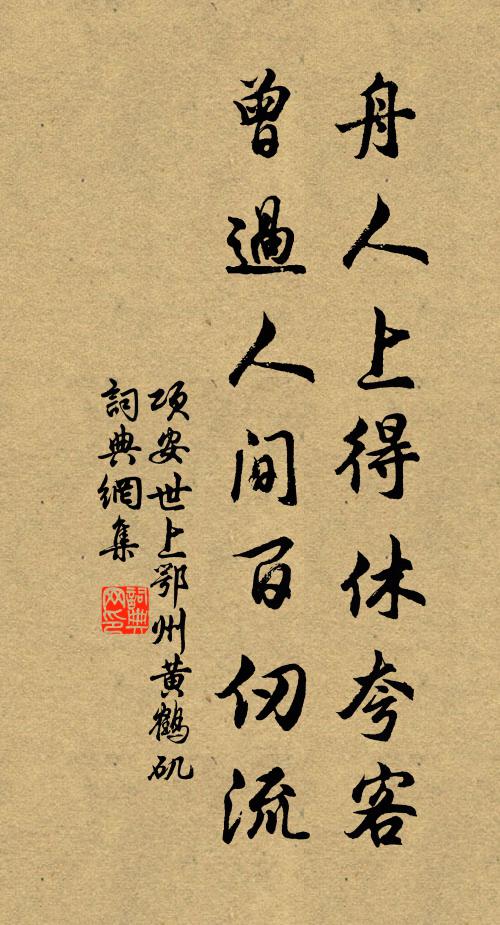 舟人上得休夸客
曾過人間百仞流
項安世上鄂州黄鶴矶
詞典網集
詞典网印